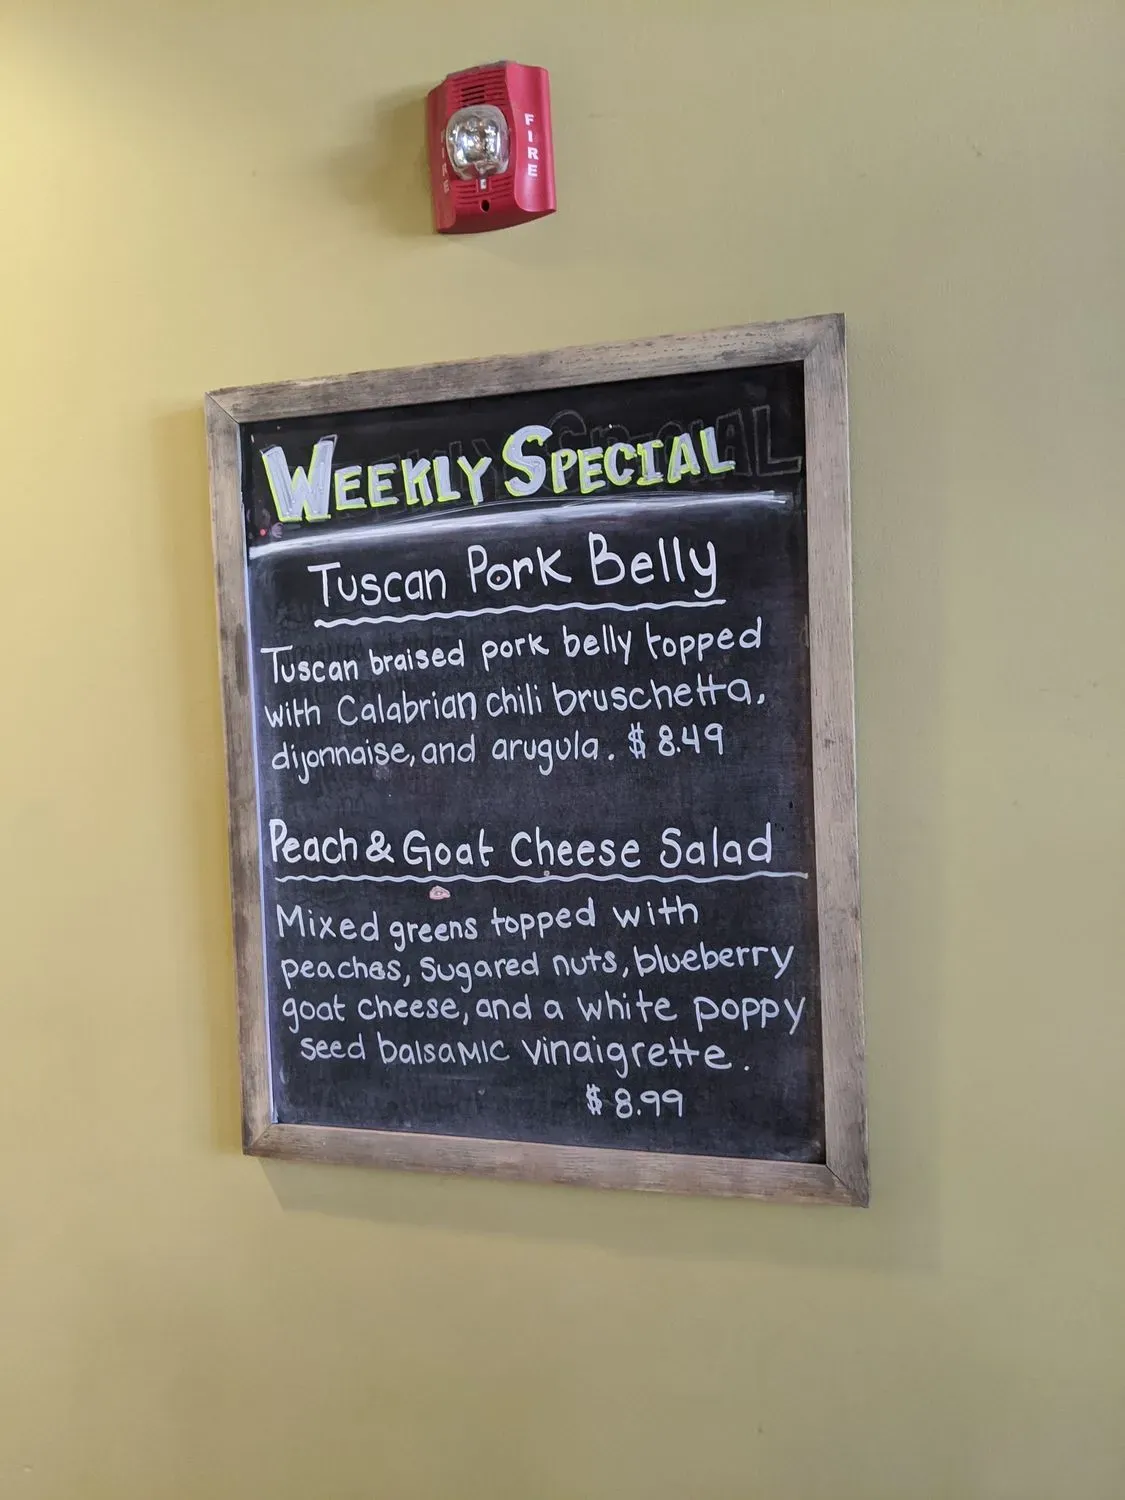 FIRE
FIRE
WEEKLY SPECIAL
Tuscan Pork Belly
Tuscan braised pork belly topped
with Calabrian chili bruschetta,
dijonnaise, and arugula. $8.49
Peach & Goat Cheese Salad
Mixed greens topped with
peaches, sugared nuts, blueberry
goat cheese, and a white poppy
seed balsaMIC vinaigrette.
$8.99